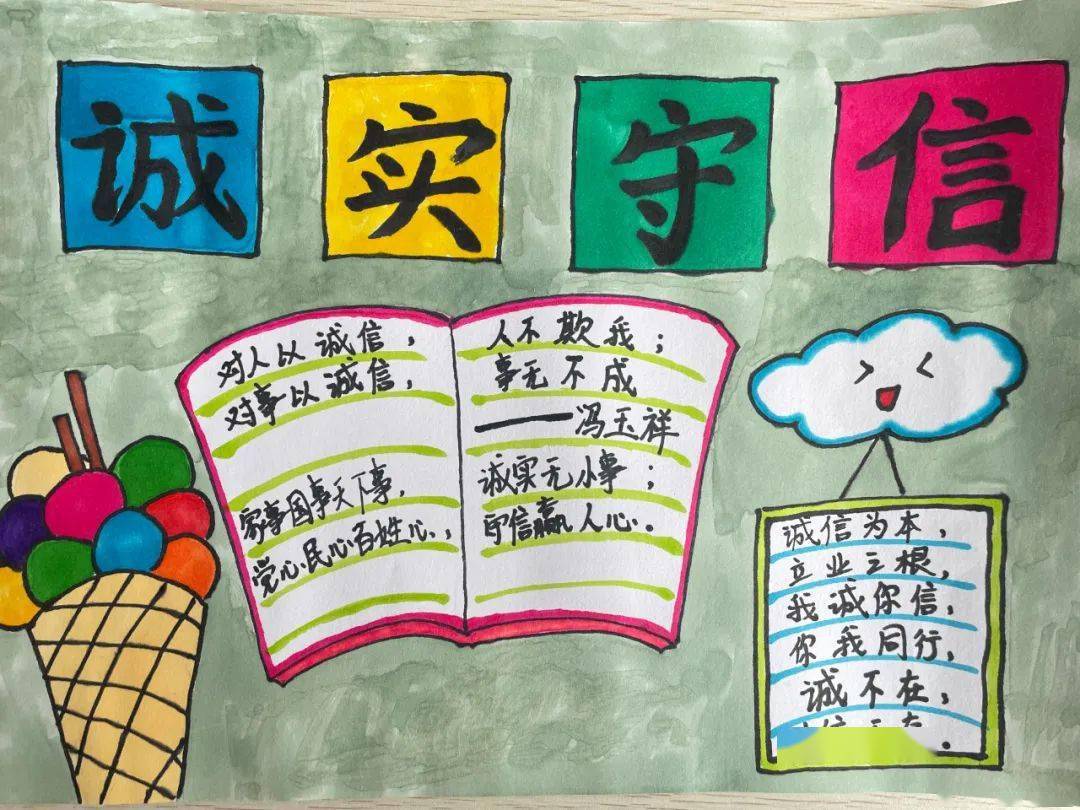 诚实守信
对人以诚信，
对事以诚信，
家事国事天下事，
党心民心百姓心，
人不欺我；
事无不成
——冯玉祥
诚实无小事；
守信赢人心。
诚信为本，
立业之根，
我诚你信，
你我同行，
诚不在，